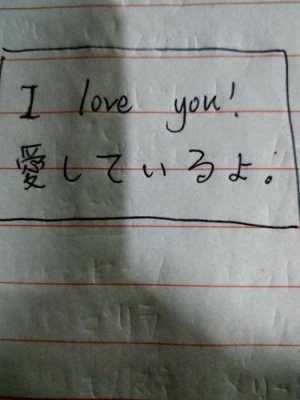 I love you!
愛しているよ。